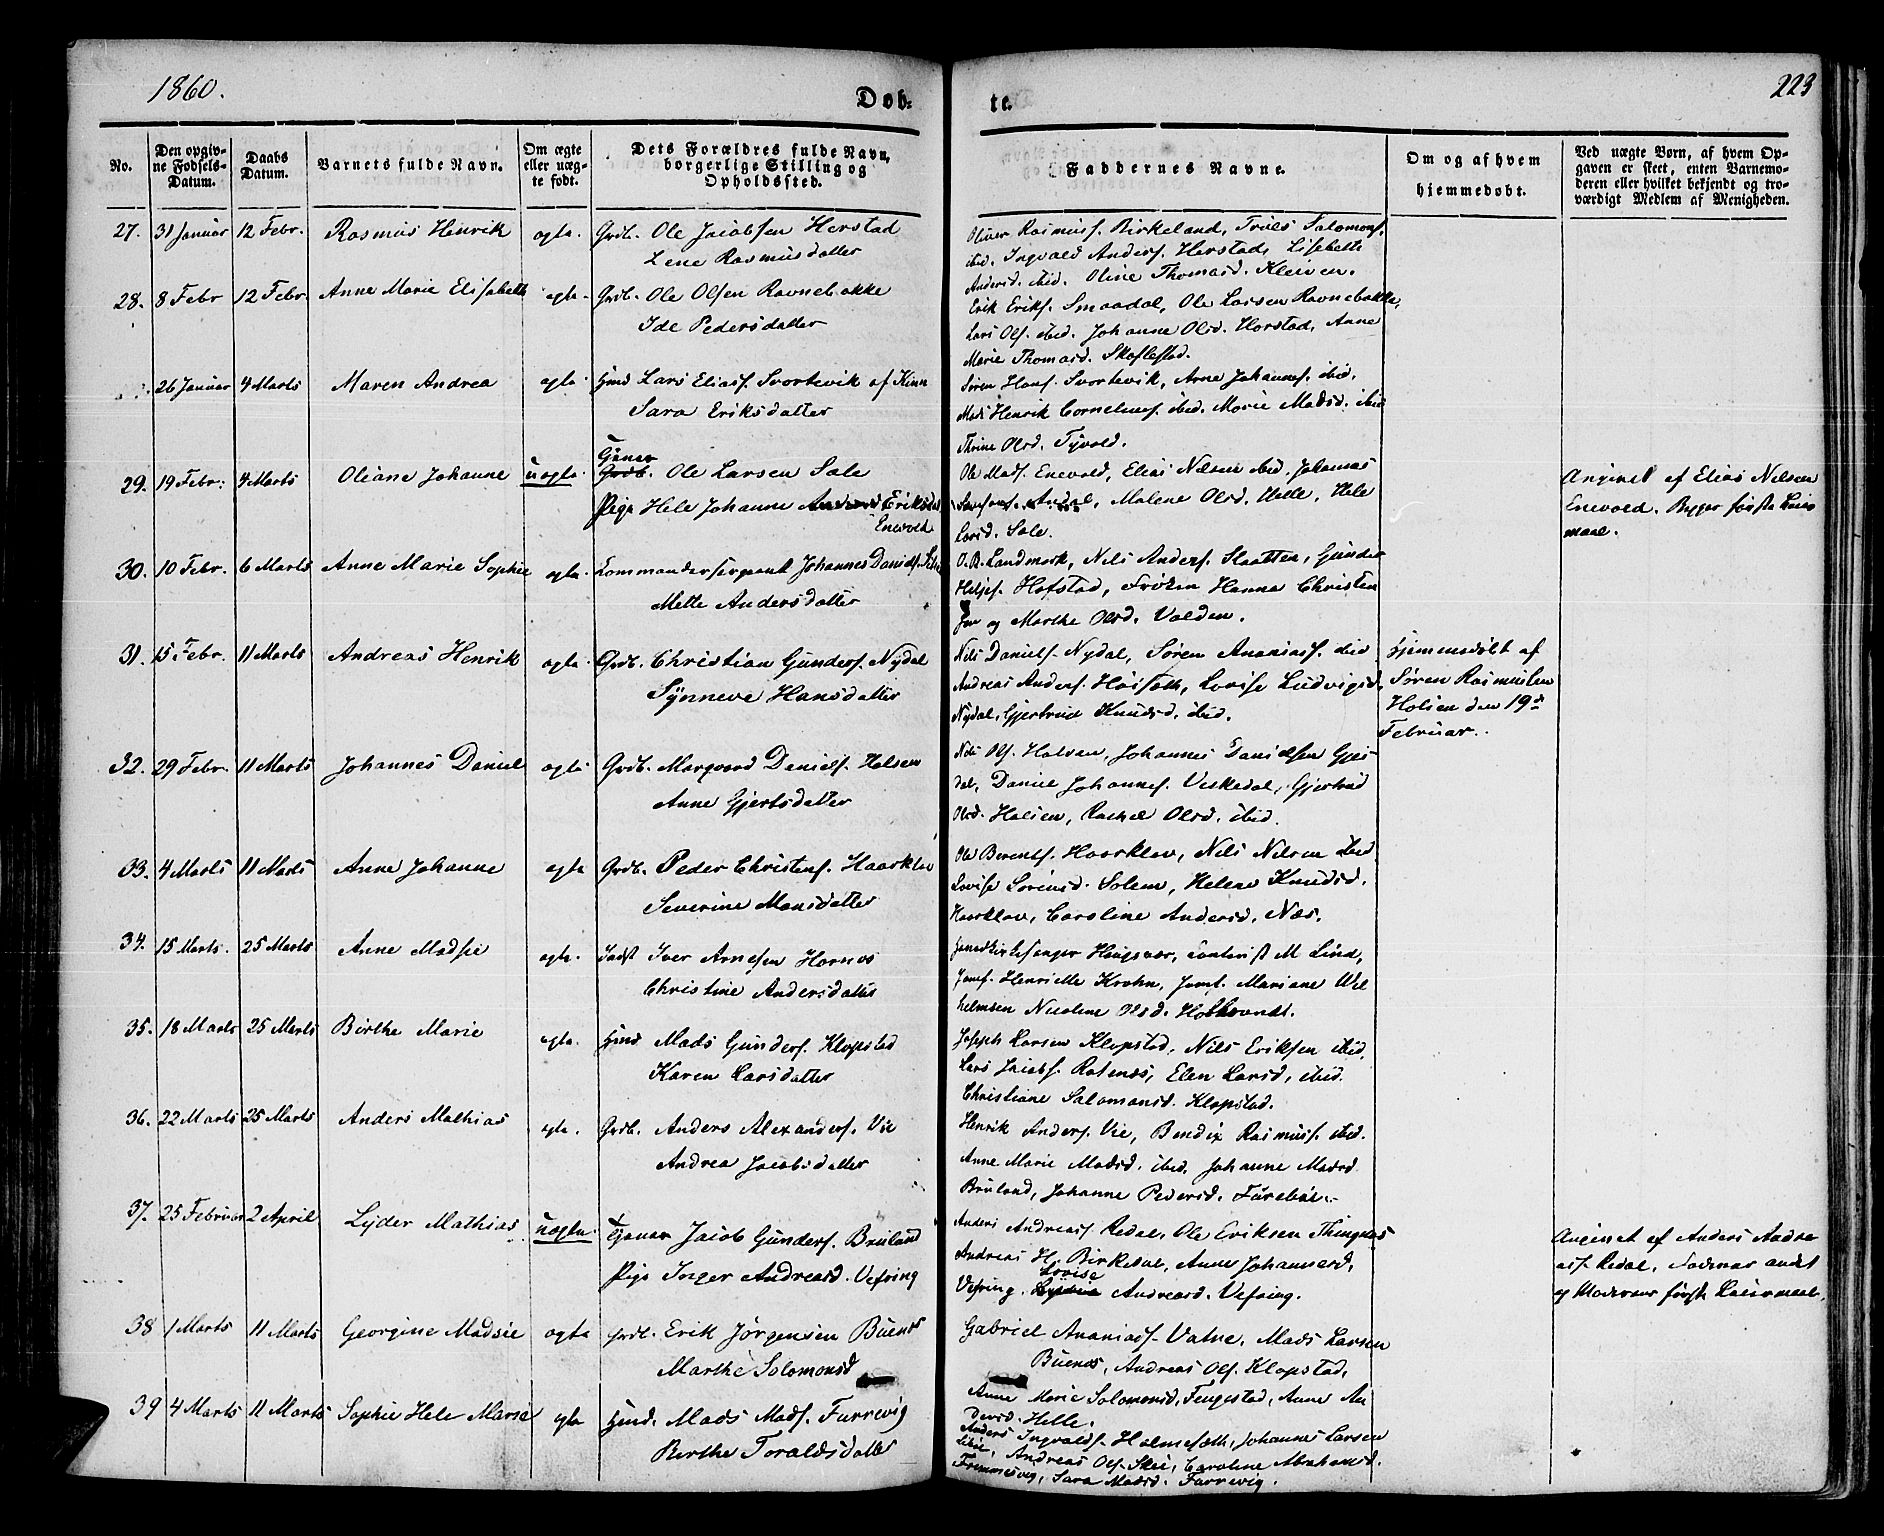 1860.
Døb-
te.
223
No.
Den opgiv-
ne Fødsels-
Datum.
Daabs
Datum.
Varnets fulde Navn.
Om ægte
eller uæg-
te født.
Dets Forældres fulde Navn,
borgerlige Stilling og
Opholdssted.
Faddernes Navne.
Om og af hvem
hjemmedøbt.
Ved uægte Børn, af hvem Op-
gaven er skeet, enten Barnemo-
deren eller hvilket bekjendt og tro-
værdigt Medlem af Menigheden.
27. 31 Januar 12 Febr. Rasmus Henrik ægte. Grdb. Ole Jacobsen Herstad
Lene Rasmusdatter
Oliver Rasmuss. Birkeland, Truls Salomons.
ibid. Ingvald Anders. Herstad, Lisebette
Andersd. ibid. Oline Thomasd. Kleiven.
28. 8 Febr 12 Febr. Anne Marie Elisabeth ægte. Grdb. Ole Olsen Ravnebakke
Ide Pedersdatter
Erik Eriks. Smaadal, Ole Larsen Ravnebakke,
Lars Ols. ibid. Johanne Olsd. Horstad, Anne
Marie Thomasd. Skaflestad.
26 Januar 4 Marts Maren Andrea ægte. Hmd Lars Eliass. Svortevik af Kinn
Sara Eriksdatter
Søren Hans. Svortevik, Arne Johannes. ibid.
Mads Henrik Cornelius. ibid. Marie Madsd. ibid
Thrine Olsd. Tyvold.
29. 19 Febr. 4 Marts Oliane Johanne uægte Grdb. Ole Larsen Sale
Pige Hele Johanne Eriksd.
Enevold
Ole Mads. Enevold, Elias Nilsen ibid. Johannes
Andal, Malene Olsd. Helle, Hele
Larsd. Sale.
Angivet af Elias Nilsen
Enevold. Begges første Leier
maal.
30. 10 Febr. 6 Marts Anne Marie Sophie ægte. Kommandersergeant Johannes Daniels.
Mette Andersdatter
O. B. Landmark, Nils Anders. Slaatten, Gunder
Hofstad, Frøken Hanna Christen
og Marthe Olsd. Valden.
31. 15 Febr. 11 Marts Andreas Henrik ægte. Grdb. Christian Gunders. Nydal
Synneve Hansdatter
Nils Daniels. Nydal, Søren Ananiass. ibid
Andreas Anders. Høisæth, Lovise Ludvigsd.
Nydal, Gjertrud Knudsd. ibid.
Hjemmedøbt af
Søren Rasmussen
Holsen den 19d
Februar.
32. 29 Febr. 11 Marts Johannes Daniel ægte Grdb. Margvard Daniels. Holsen
Anne Gjertsdatter
Nils Ols. Halvan, Johannes Danielsen Gjes-
dal, Daniel Johannes. Veskedal, Gjertrud
Olsd. Holsen, Rachel Olsd. ibid.
33. 4 Marts 11 Marts Anne Johanne ægte Grdb. Peder Christens. Haarklau
Severine Monsdatter
Ole Berents. Haarklau, Nils Nilsen ibid.
Lovise Sørensd. Solem, Helene Knudsd.
Haarklau, Caroline Andersd. Næs.
34. 15 Marts. 25 Marts Anne Madsie ægte. Indst Iver Arnesen Hornes
Christine Andersdatter
Kirkesanger Haugsvær, Contorist M Lind,
Jomf. Henriette Krohn, Jomf. Mariane Wil
helmsen Nicoline Olsd. Holsbrandt.
35. 18 Marts 25 Marts Birthe Marie ægte. Hmd Mads Gunders. Klopstad
Karen Larsdatter
Joseph Larsen Klopstad, Nils Eriksen ibid.
Lars Jacobs. Rotenæs, Elen Larsd. ibid.
Christiane Salomonsd. Klopstad.
36. 22 Marts 25 Marts Anders Mathias ægte. Grdb. Anders Alexanders. Vie
Andrea Jacobsdatter
Henrik Anders. Vie, Bendix Rasmuss. ibid.
Anne Marie Madsd. ibid. Johanne Madsd
Bruland, Johanne Pedersd. Farebøe.
37. 25 Februar 2 April Lyder Mathias uægte. Jacob Gunders. Bruland
Pige Inger Andreasd. Vefring
Anders Andreass. Redal, Ole Eriksen Thingnæs
Andreas H. Birkedal, Anne Johannesd.
Vefring. Lovise Andreasd. Vefring.
Angivet af Anders Andre
ass. Redal. Faderens andet
og Moderens første Leiermaal.
38 1 Marts 11 Marts Georgine Madsie ægte Grdb. Erik Jørgensen Buenes
Marthe Solomonsd
Gabriel Ananiass. Vatne, Mads Larsen
Buenes, Andreas Ols. Klopstad,
Anne Marie Salomonsd. Tengestad, Anne An
dersd. Helle.
39 4 Marts 11 Marts Sophie Hele Marie ægte Hmd. Mads Mads. Furrevig
Berthe Toraldsdatter
Anders Ingvalds. Holmesæth, Johannes Larsen
Andreas Ols. Skei, Caroline Abrahamsd.
Frammesvig, Sara Madsd. Furrevig.